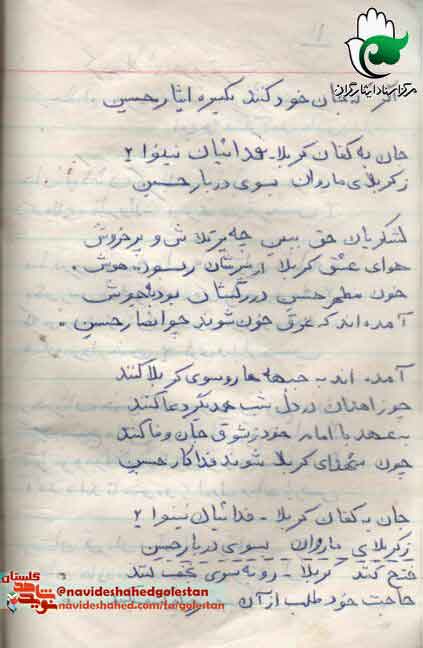 ۱۱
مرکز اسناد ایثارگران
به جان خود کنند یکسره ایثار حسین
جان به کفان کربلا - فدائیان نینوا ۲
ز کربلای ما روان بسوی دربار حسین
لشکریان حق ببین چه پر تلاش و پر خروش
هوای عشق کربلا از سرشان ربوده هوش .
خون مطهر حسین در رگشان بود بجوش
آمده اند که غرق خون شوند چو انصار حسین .
آمده اند به جبهه ها رو سوی کربلا کنند
چو زاهدان در دل شب همدیگر دعا کنند
به عهد با امام خود ز شوق جان وفا کنند
چون شهدای کربلا شوند فداکار حسین
جان به کفان کربلا - فدائیان نینوا ۲
ز کربلای ما روان بسوی دربار حسین
فتح کنند کربلا - رو به سوی نجف کنند
حاجت خود طلب از آن
نوید شاهد گلستان
@navideshahedgolestan
navideshahed.com/fa/golestan